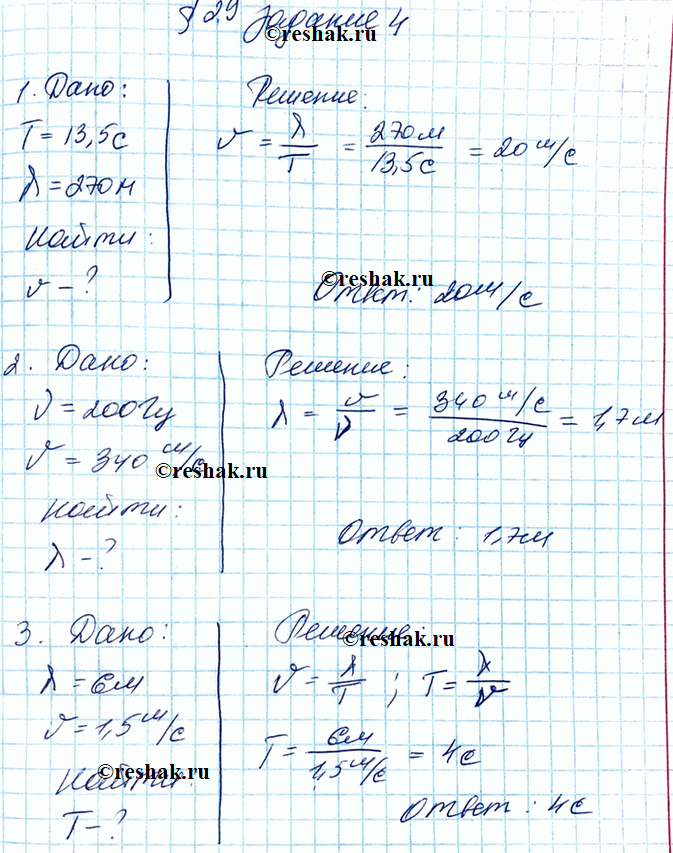 § 29 Задание 4
©reshak.ru
1. Дано:
T = 13,5с
λ = 270м
Найти:
v – ?
Решение:
v = λ/T = 270м/13,5с = 20 м/с
©reshak.ru
Ответ: 20м/с
2. Дано:
ν = 200Гц
v = 340 м/с
©reshak.ru
Найти:
λ – ?
Решение:
λ = v/ν = 340 м/с / 200Гц = 1,7м
Ответ: 1,7м
3. Дано:
λ = 6м
v = 1,5 м/с
Найти:
©reshak.ru
T – ?
Решение:
©reshak.ru
v = λ/T ; T = λ/v
T = 6м / 1,5м/с = 4с
Ответ: 4с